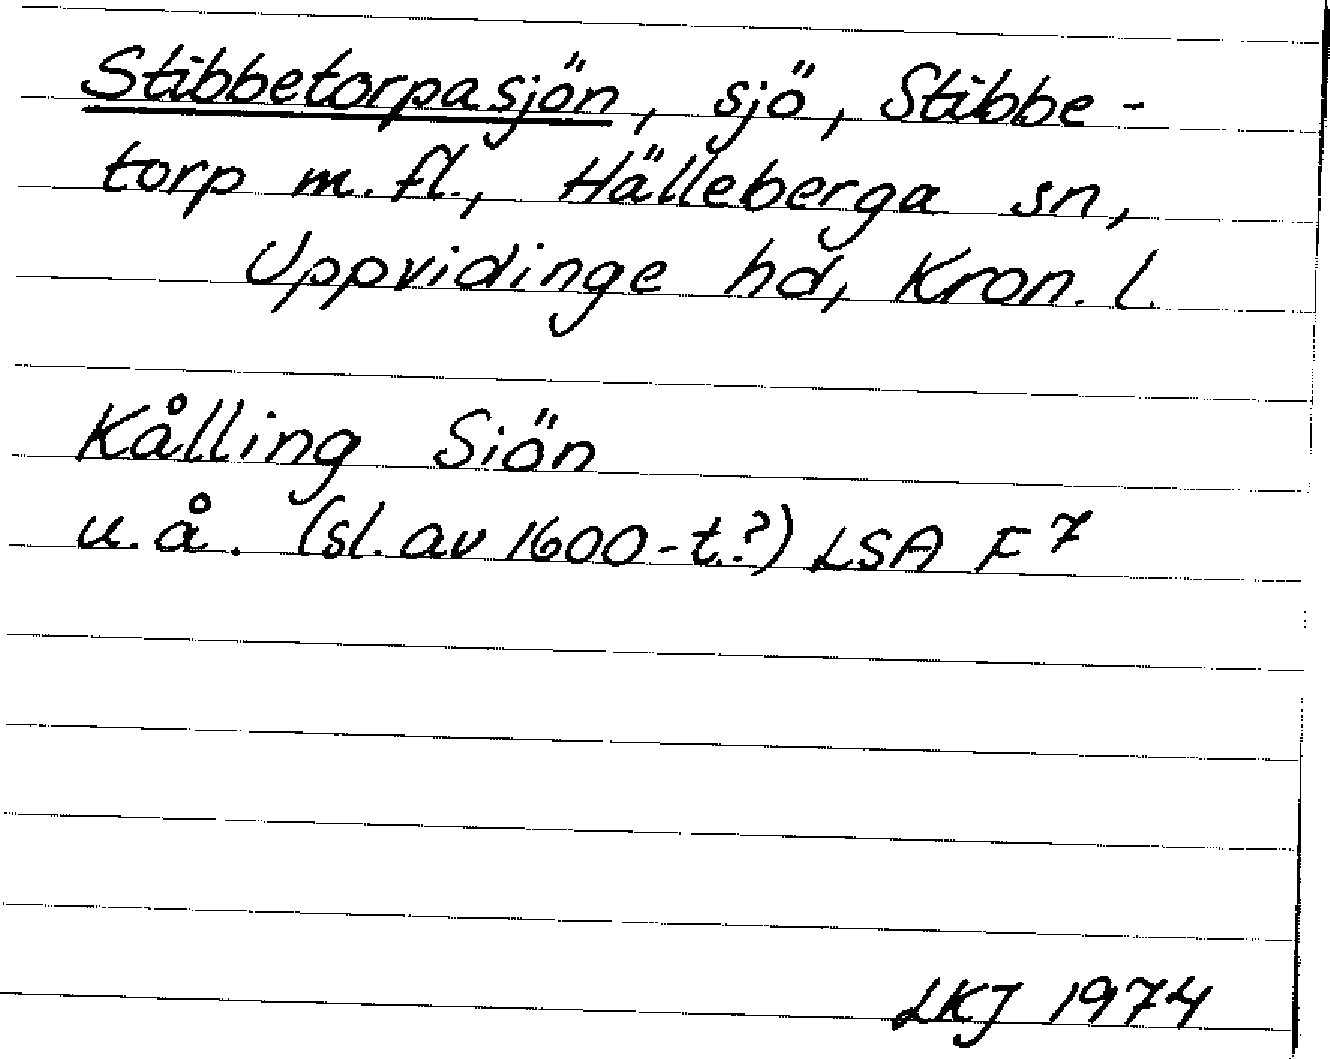 Stibbetorpasjön, sjö, Stibbe-
torp m. fl., Hälleberga sn,
Uppvidinge hd, Kron. l.
Kålling Siön
u. å. (sl. av 1600-t.?) LSA F 7
LKJ 1974